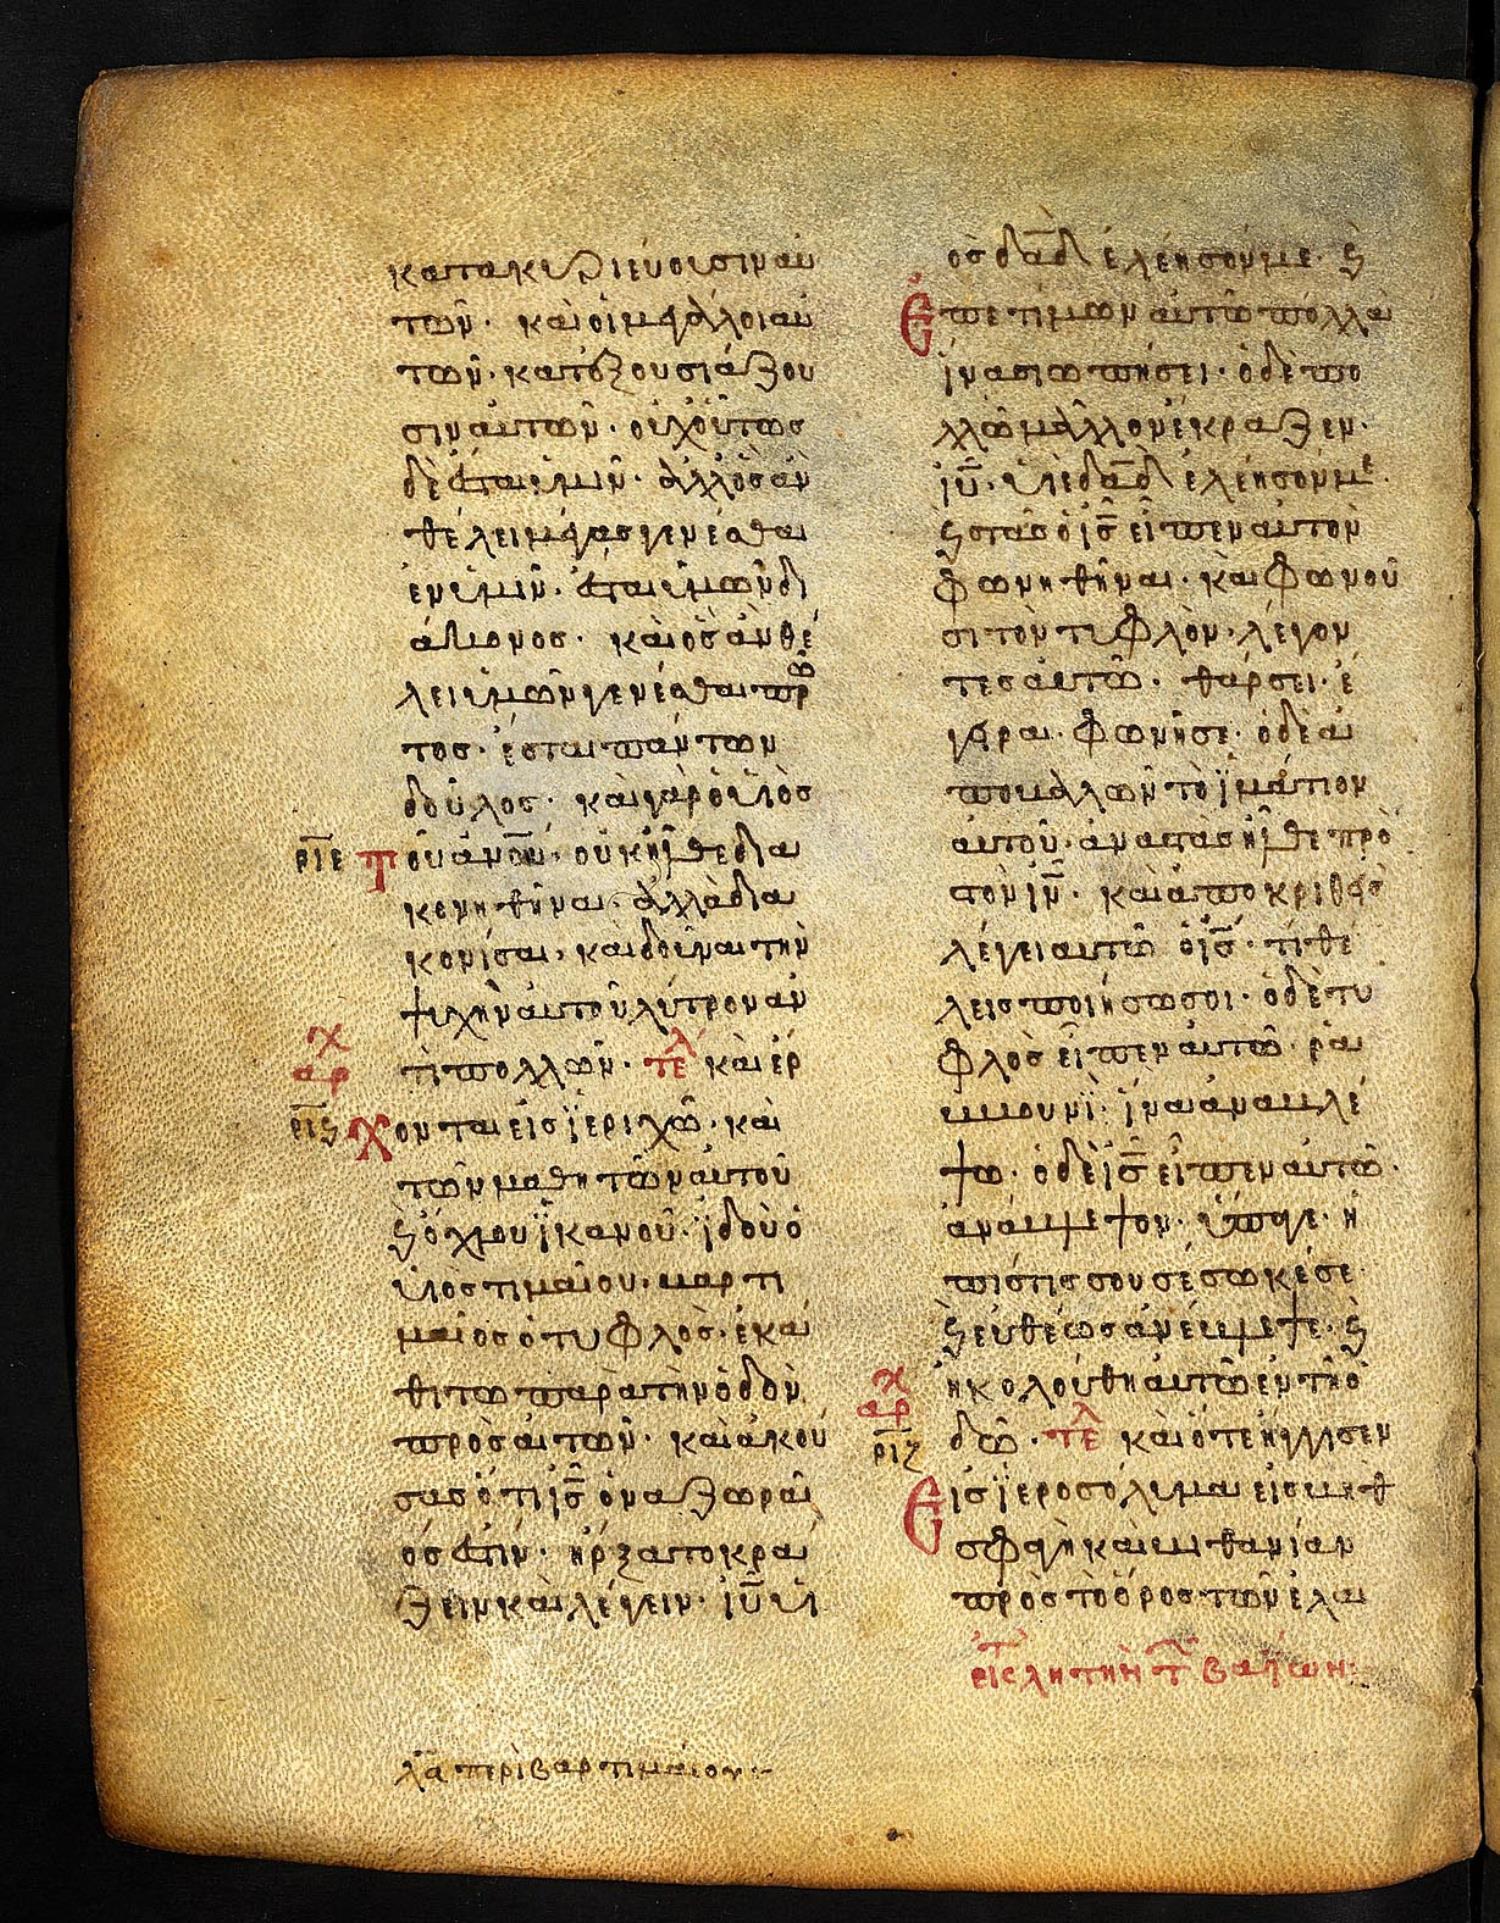 κατακυριεύουσιν αὐ
τῶν· καὶ οἱ μεγάλοι αὐ
τῶν· κατεξουσιάζου
σιν αὐτῶν· οὐχ οὕτως
δὲ ἔσται ὑμῖν· ἀλλ' ὃς ἂν
θέλει μέγας γενέσθαι
ἐν ὑμῖν· ἔσται ὑμῶν δι
άκονος· καὶ ὃς ἂν θέ
λει ὑμῶν γενέσθαι πρῶ
τος· ἔσται πάντων
δοῦλος· καὶ γὰρ ὁ υἱὸς
ριε Τοῦ ἀνου· οὐκ ἦλθε δια
κονηθῆναι· ἀλλὰ δια
κονῆσαι, καὶ δοῦναι τὴν
ψυχὴν αὐτοῦ λύτρον ἀν
αρχ
τὶ πολλῶν· τελ καὶ ἔρ
ριϛ Χονται εἰς ϊεριχῶ· και
τῶν μαθητῶν αὐτοῦ
ϗ ὄχλου ϊκανοῦ· ἰδοὺ ὁ
υἱὸς τιμαίου· βαρτι
μαῖος ὁ τυφλὸς· ἐκά
θιτω παρὰ τὴν ὁδὸν
πρὸς αὐτῶν· καὶ ἀκού
σας ὅτι ις ὁ ναζωραῖ
ός ἐστιν· ἤρξατο κρά
ζειν καὶ λέγειν· ιυ υἱ
λα περὶ βαρτιμαίου:~
ὸς δαδ ἐλέησόν με· ϗ
Ἐπετίμων αὐτῶ πολλὰ
ἵνα σιωπήσει· ὁ δὲ πο
λλῶ μᾶλλον ἔκραζεν·
ιυ· υἱὲ δαδ ἐλέησόν με·
ϗ στὰς ὁ ις εἶπεν αὐτὸν
φωνηθῆναι· καὶ φωνοῦ
σι τὸν τυφλὸν, λέγον
τες αὐτῶ· θάρσει· ἔ
γειραι· φωνῆ σε· ὁ δὲ ἀ
ποβαλῶν τὸ ϊμάτιον
αὐτοῦ· ἀναστὰς ἦλθε πρὸ
τὸν ιν· καὶ ἀποκριθεὶς
λέγει αὐτῶ ὁ ις· τί θέ
λεις ποιήσω σοι· ὁ δὲ τυ
φλὸς εἶπεν αὐτῶ· ρα
βουνὶ· ἵνα ἀναβλέ
ψω· ὁ δὲ ις εἶπεν αὐτῶ·
ἀνάβλεψον· ὕπαγε· ἡ
πίστις σου σέσωκέ σε·
ϗ εὐθέως ἀνέβλεψε· ϗ
αρχ
ἠκολούθη αὐτῶ ἐν τῆ ὁ
ριζ δῶ· τελ καὶ ὅτε ἤγγισεν
Εἰς ϊεροσόλυμα εἰς βηθ
σφαγὴ καὶ βηθανίαν
πρὸς τὸ ὄρος τῶν ἐλαι
εἰς λητὴν τ βαΐων: